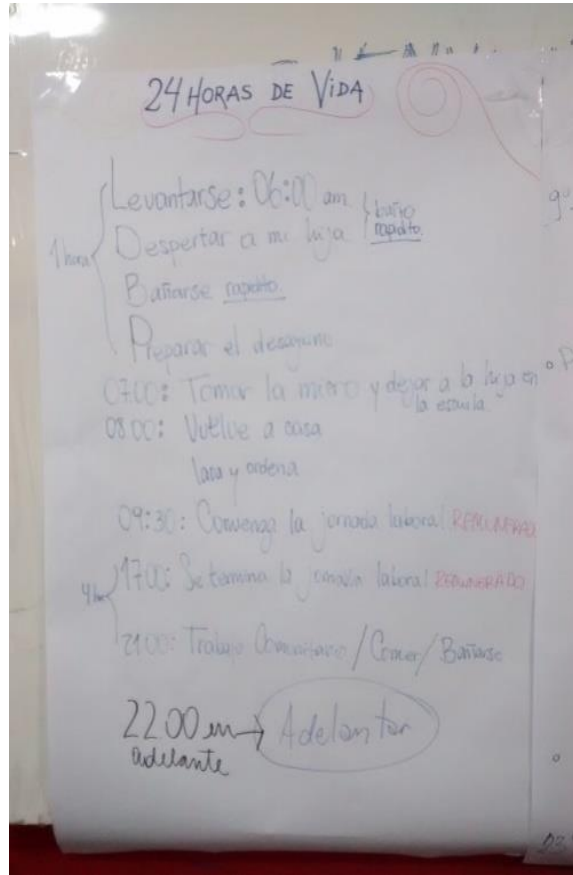 24 HORAS DE VIDA
Levantarse: 06:00 am
Despertar a mi hija
baño
rapidito.
1 hora
Bañarse rapidito
Preparar el desayuno
07:00: Tomar la micro y dejar a la hija en
la escuela
08:00: Vuelve a casa
lava y ordena
09:30: Comienza la jornada laboral REMUNERADO
17:00: Se termina la jornada laboral REMUNERADO
21:00: Trabajo Comunitario / Comer / Bañarse
22:00 en → Adelantar
adelante